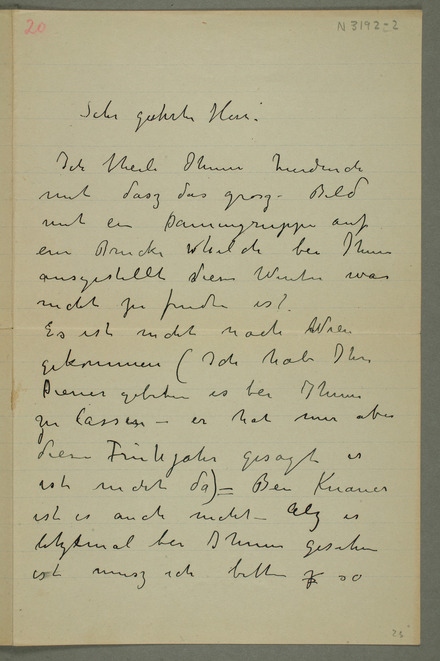 20
N 3192-2
Sehr geehrter Herr!
Ich theile Ihnen hierdurch
mit dasz das grosz- Bild
mit ein Damengruppe auf
ein Brücke welche bei Ihnen
ausgestellt diesen Winter war
nicht zu finden ist.
Es ist nicht nach Wien
gekommen (Ich habe Ihre
Diener gebeten es bei Ihnen
zu lassen – er hat mir aber
diesen Frühjahr gesagt es
ist nicht da) – Bei
ist es auch nicht – Alz es
letztmal bei Ihnen gesehen
ist musz ich bitten so